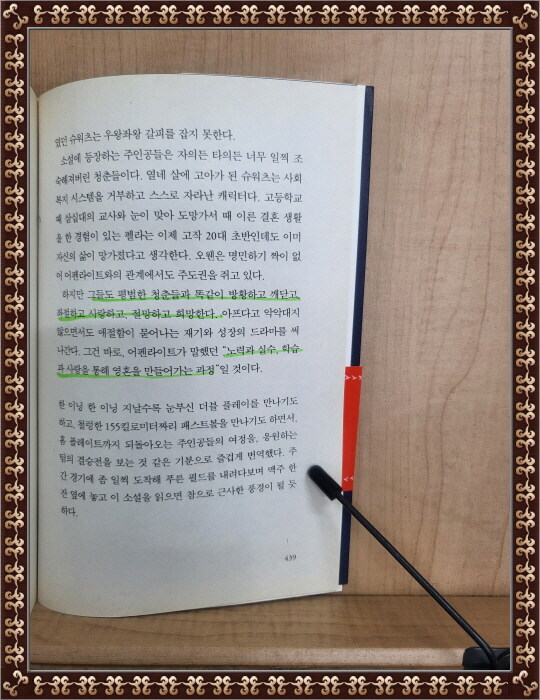 였던 슈워츠는 우왕좌왕 갈피를 잡지 못한다.
소설에 등장하는 주인공들은 자의든 타의든 너무 일찍 조
숙해져버린 청춘들이다. 열네 살에 고아가 된 슈워츠는 사회
복지 시스템을 거부하고 스스로 자라난 캐릭터다. 고등학교
때 삼십대의 교사와 눈이 맞아 도망가서 때 이른 결혼 생활
을 한 경험이 있는 펠라는 이제 고작 20대 초반인데도 이미
자신의 삶이 망가졌다고 생각한다. 오웬은 명민하기 짝이 없
어 어펜라이트와의 관계에서도 주도권을 쥐고 있다.
하지만 그들도 평범한 청춘들과 똑같이 방황하고 깨닫고,
좌절하고 사랑하고, 절망하고 희망한다. 아프다고 악악대지
않으면서도 애절함이 묻어나는 재기와 성장의 드라마를 써
나간다. 그건 바로, 어펜라이트가 말했던 "노력과 실수, 학습
과 사랑을 통해 영혼을 만들어가는 과정"일 것이다.
한 이닝 한 이닝 지날수록 눈부신 더블 플레이를 만나기도
하고, 철렁한 155킬로미터짜리 패스트볼을 만나기도 하면서,
홈 플레이트까지 되돌아오는 주인공들의 여정을, 응원하는
팀의 결승전을 보는 것 같은 기분으로 즐겁게 번역했다. 주
간 경기에 좀 일찍 도착해 푸른 필드를 내려다보며 맥주 한
잔 옆에 놓고 이 소설을 읽으면 참으로 근사한 풍경이 될 듯
하다.
439